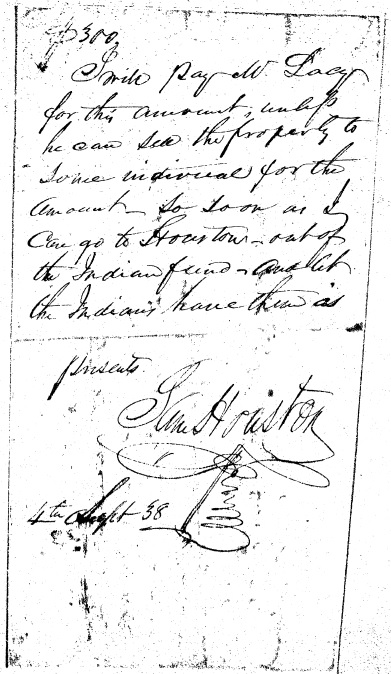 $300,
I will pay Mr. Lacy
for this amount, unless
he can see the property to
some individual for the
amount - So soon as I
can go to Houston - out of
the Indian fund - and let
the Indians have them as
presents.
Sam Houston
4th Sept 38